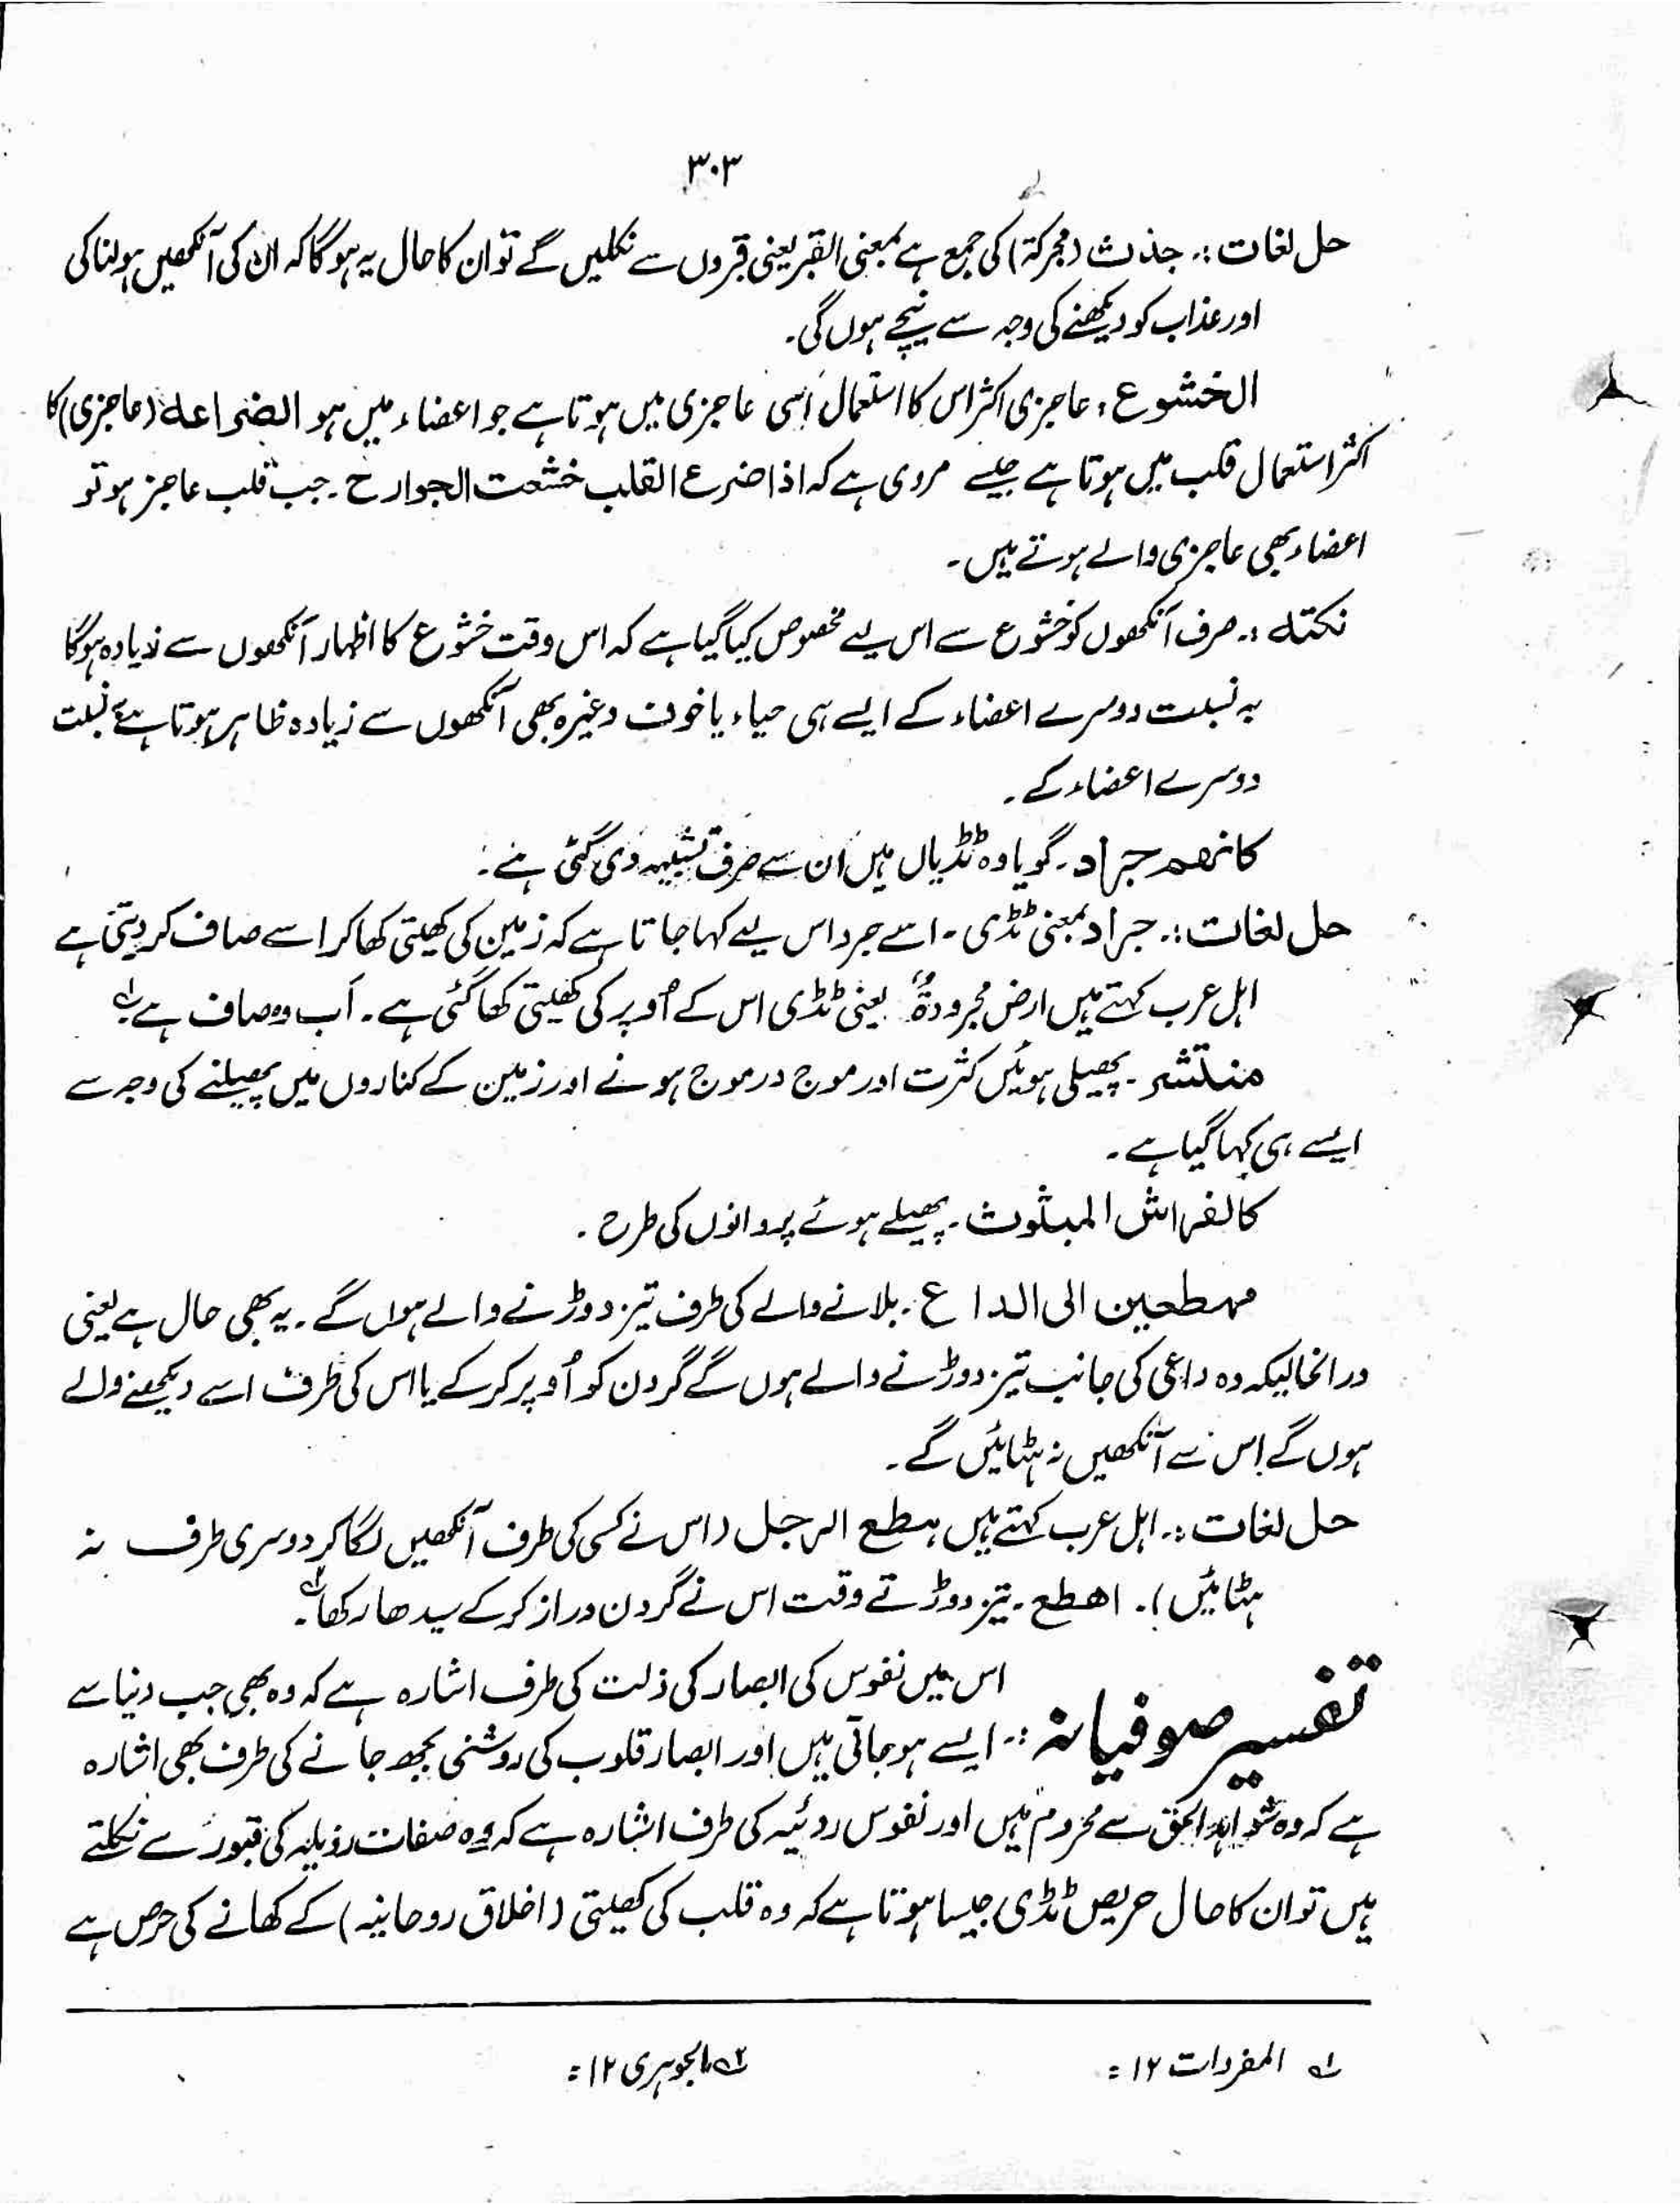 ۳۰۳
حل لغات :۔ جذث (محرکۃ) کی جمع ہے بمعنی القبر یعنی قبروں سے نکلیں گے تو ان کا حال یہ ہوگا کہ ان کی آنکھیں ہولناکی
اور عذاب کو دیکھنے کی وجہ سے نیچے ہوں گی۔
الخشوع ، عاجزی اکثر اس کا استعمال اسی عاجزی میں ہوتا ہے جو اعضاء میں ہو الضراعۃ (عاجزی) کا
اکثر استعمال قلب میں ہوتا ہے جیسے مروی ہے کہ اذا ضرع القلب خشعت الجوارح ۔ جب قلب عاجز ہو تو
اعضاء بھی عاجزی والے ہوتے ہیں ۔
نکتہ :۔ صرف آنکھوں کو خشوع سے اس لیے مخصوص کیا گیا ہے کہ اس وقت خشوع کا اظہار آنکھوں سے زیادہ ہوگا
بہ نسبت دوسرے اعضاء کے ایسے ہی حیاء یا خوف وغیرہ بھی آنکھوں سے زیادہ ظاہر ہوتا ہے بہ نسبت
دوسرے اعضاء کے ۔
کانھم جراد ۔ گویا وہ ٹڈیاں ہیں ان سے صرف تشبیہہ دی گئی ہے ۔
حل لغات :۔ جراد بمعنی ٹڈی ۔ اسے جرد اس لیے کہا جاتا ہے کہ زمین کی کھیتی کھا کر اسے صاف کر دیتی ہے
اہل عرب کہتے ہیں ارض مجرودۃٌ یعنی ٹڈی اس کے اُوپر کی کھیتی کھا گئی ہے ۔ اَب وہ صاف ہے ۱؎
منتشر ۔ پھیلی ہوئیں کثرت اور موج در موج ہونے اور زمین کے کناروں میں پھیلنے کی وجہ سے
ایسے ہی کہا گیا ہے ۔
کالفراش المبثوث ۔ پھیلے ہوئے پروانوں کی طرح ۔
مہطعین الی الداع ۔ بلانے والے کی طرف تیز دوڑنے والے ہوں گے ۔ یہ بھی حال ہے یعنی
درانحالیکہ وہ داعی کی جانب تیز دوڑنے والے ہوں گے گردن کو اُوپر کر کے یا اس کی طرف اسے دیکھنے والے
ہوں گے اس سے آنکھیں نہ ہٹائیں گے ۔
حل لغات :۔ اہل عرب کہتے ہیں ہطع الرجل (اس نے کسی کی طرف آنکھیں لگا کر دوسری طرف نہ
ہٹائیں) ۔ اھطع ۔ تیز دوڑتے وقت اس نے گردن دراز کر کے سیدھا رکھا ۲؎ ۔
اس میں نفوس کی ابصار کی ذلت کی طرف اشارہ ہے کہ وہ بھی جب دنیا سے
تفسیر صوفیانہ :۔ ایسے ہو جاتی ہیں اور ابصار قلوب کی روشنی بجھ جانے کی طرف بھی اشارہ
ہے کہ وہ شواہد الحق سے محروم ہیں اور نفوس ردئیہ کی طرف اشارہ ہے کہ وہ صفات رذیلہ کی قبور سے نکلتے
ہیں تو ان کا حال حریص ٹڈی جیسا ہوتا ہے کہ وہ قلب کی کھیتی (اخلاق روحانیہ) کے کھانے کی حرص ہے
۱؎ المفردات ۱۲ =
۲؎ الجوہری ۱۲ =